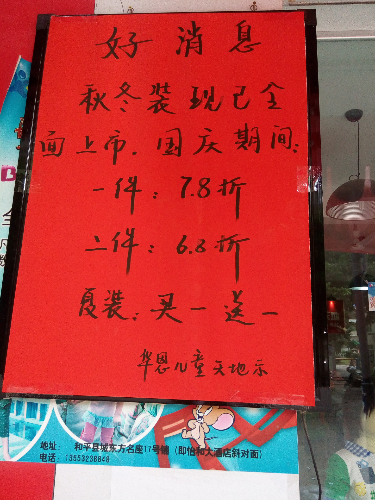 好消息
秋冬装现已全
面上市.国庆期间:
一件:7.8折
二件:6.8折
夏装:买一送一
华恩儿童天地示
地址: 和平县城东方名座17号铺(即怡和大酒店斜对面)
电话:13553238848